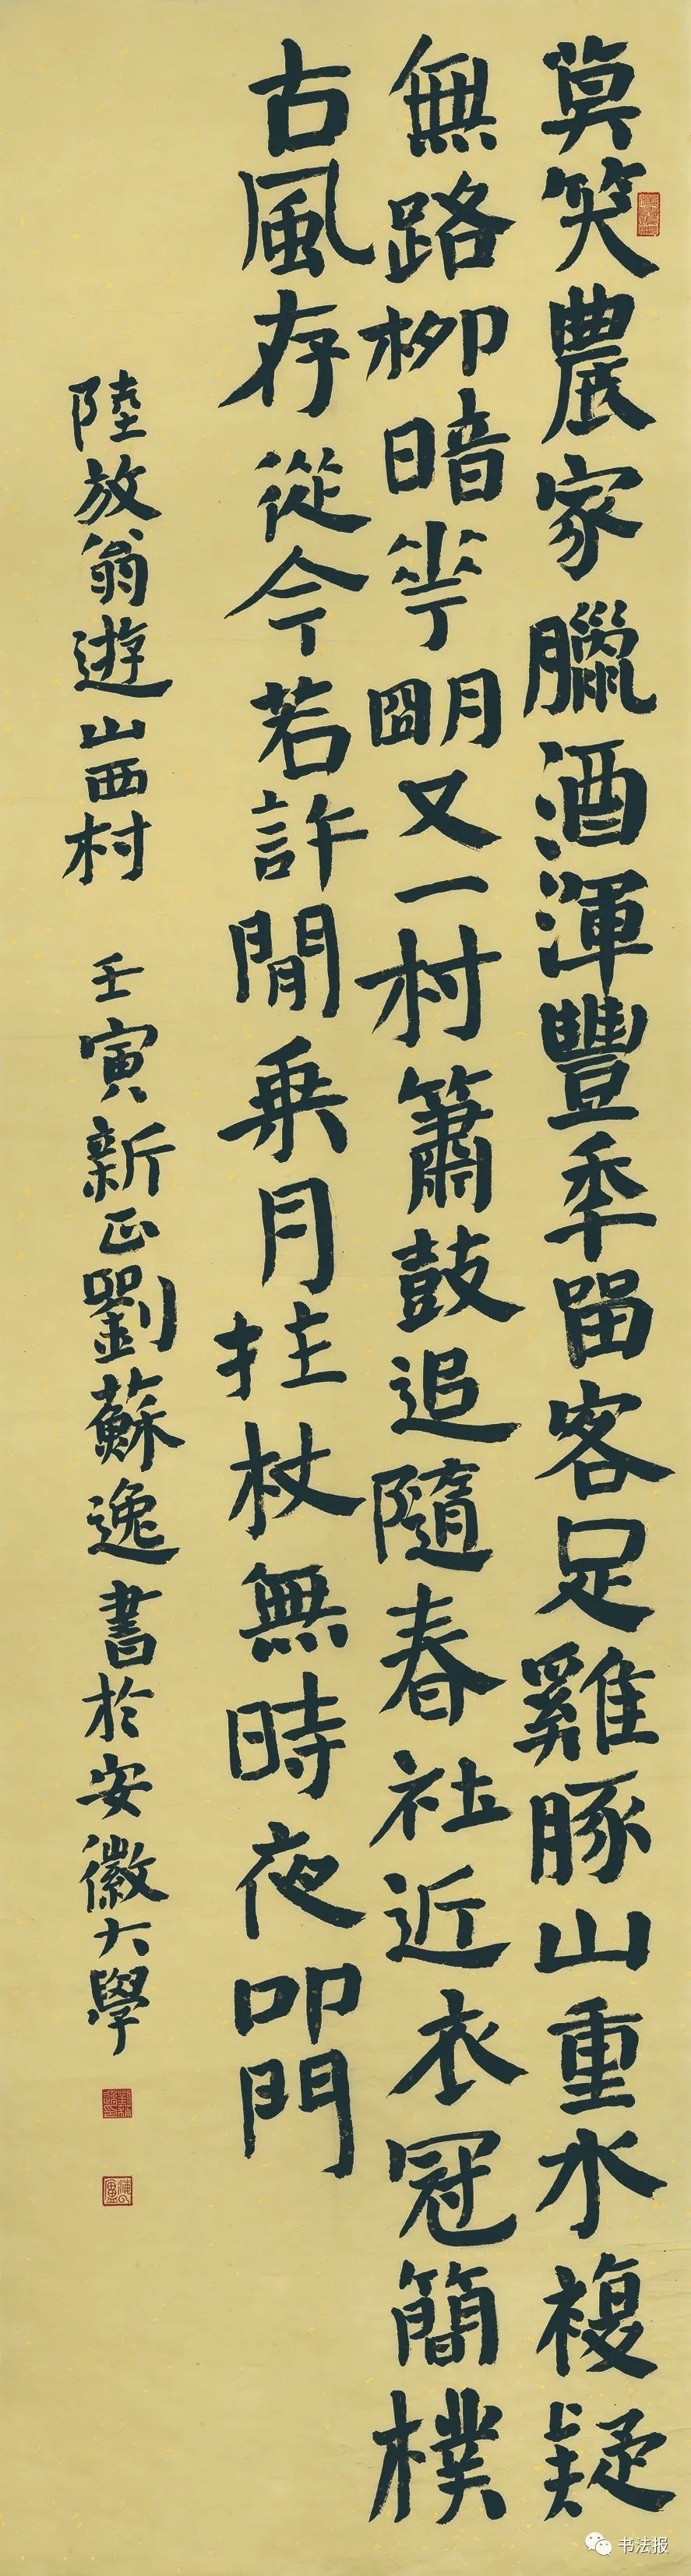 莫笑農家臘酒渾豐季留客足雞豚山重水複疑
無路柳暗花明又一村簫鼓追隨春社近衣冠簡樸
古風存從今若許閒乗月拄杖無時夜叩門
陸放翁遊山西村 壬寅新正劉蘇逸書於安徽大學
书法报